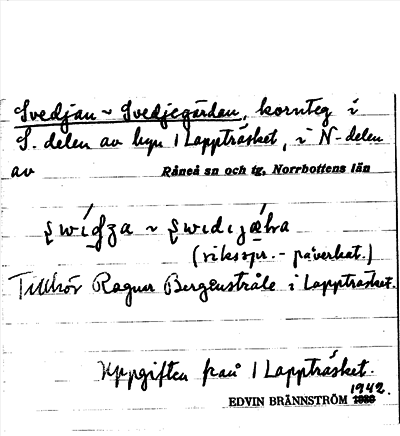 Svedjan ~ Svedjegården, kornteg i
S. delen av byn 1 Lappträsket, i N-delen
av Råneå sn och tg, Norrbottens län
(riksspr. - påverkat.)
Tillhör Ragnar Bergenstråle i Lappträsket.
Uppgiften från 1 Lappträsket.
1942.
EDVIN BRÄNNSTRÖM